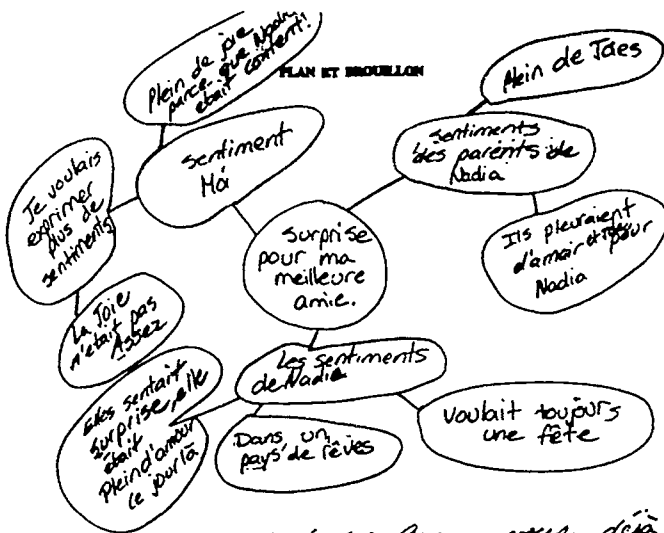 PLAN ET BROUILLON
Plein de joie
parce que Nadia
était content!
Plein de Joies
Sentiment
Má
Sentiments
des parents de
Nadia
Je voulais
exprimer
plus de
sentiments
Surprise
pour ma
meilleure
amie.
Ils pleuraient
d'amour et Joies pour
Nadia
La Joie
n'était pas
Assez
Les sentiments
de Nadia
Elles sentait
surprise, elle
était
Plein d'amour
ce jour là
Dans un
pays de rêves
Voulait toujours
une fête
déjà